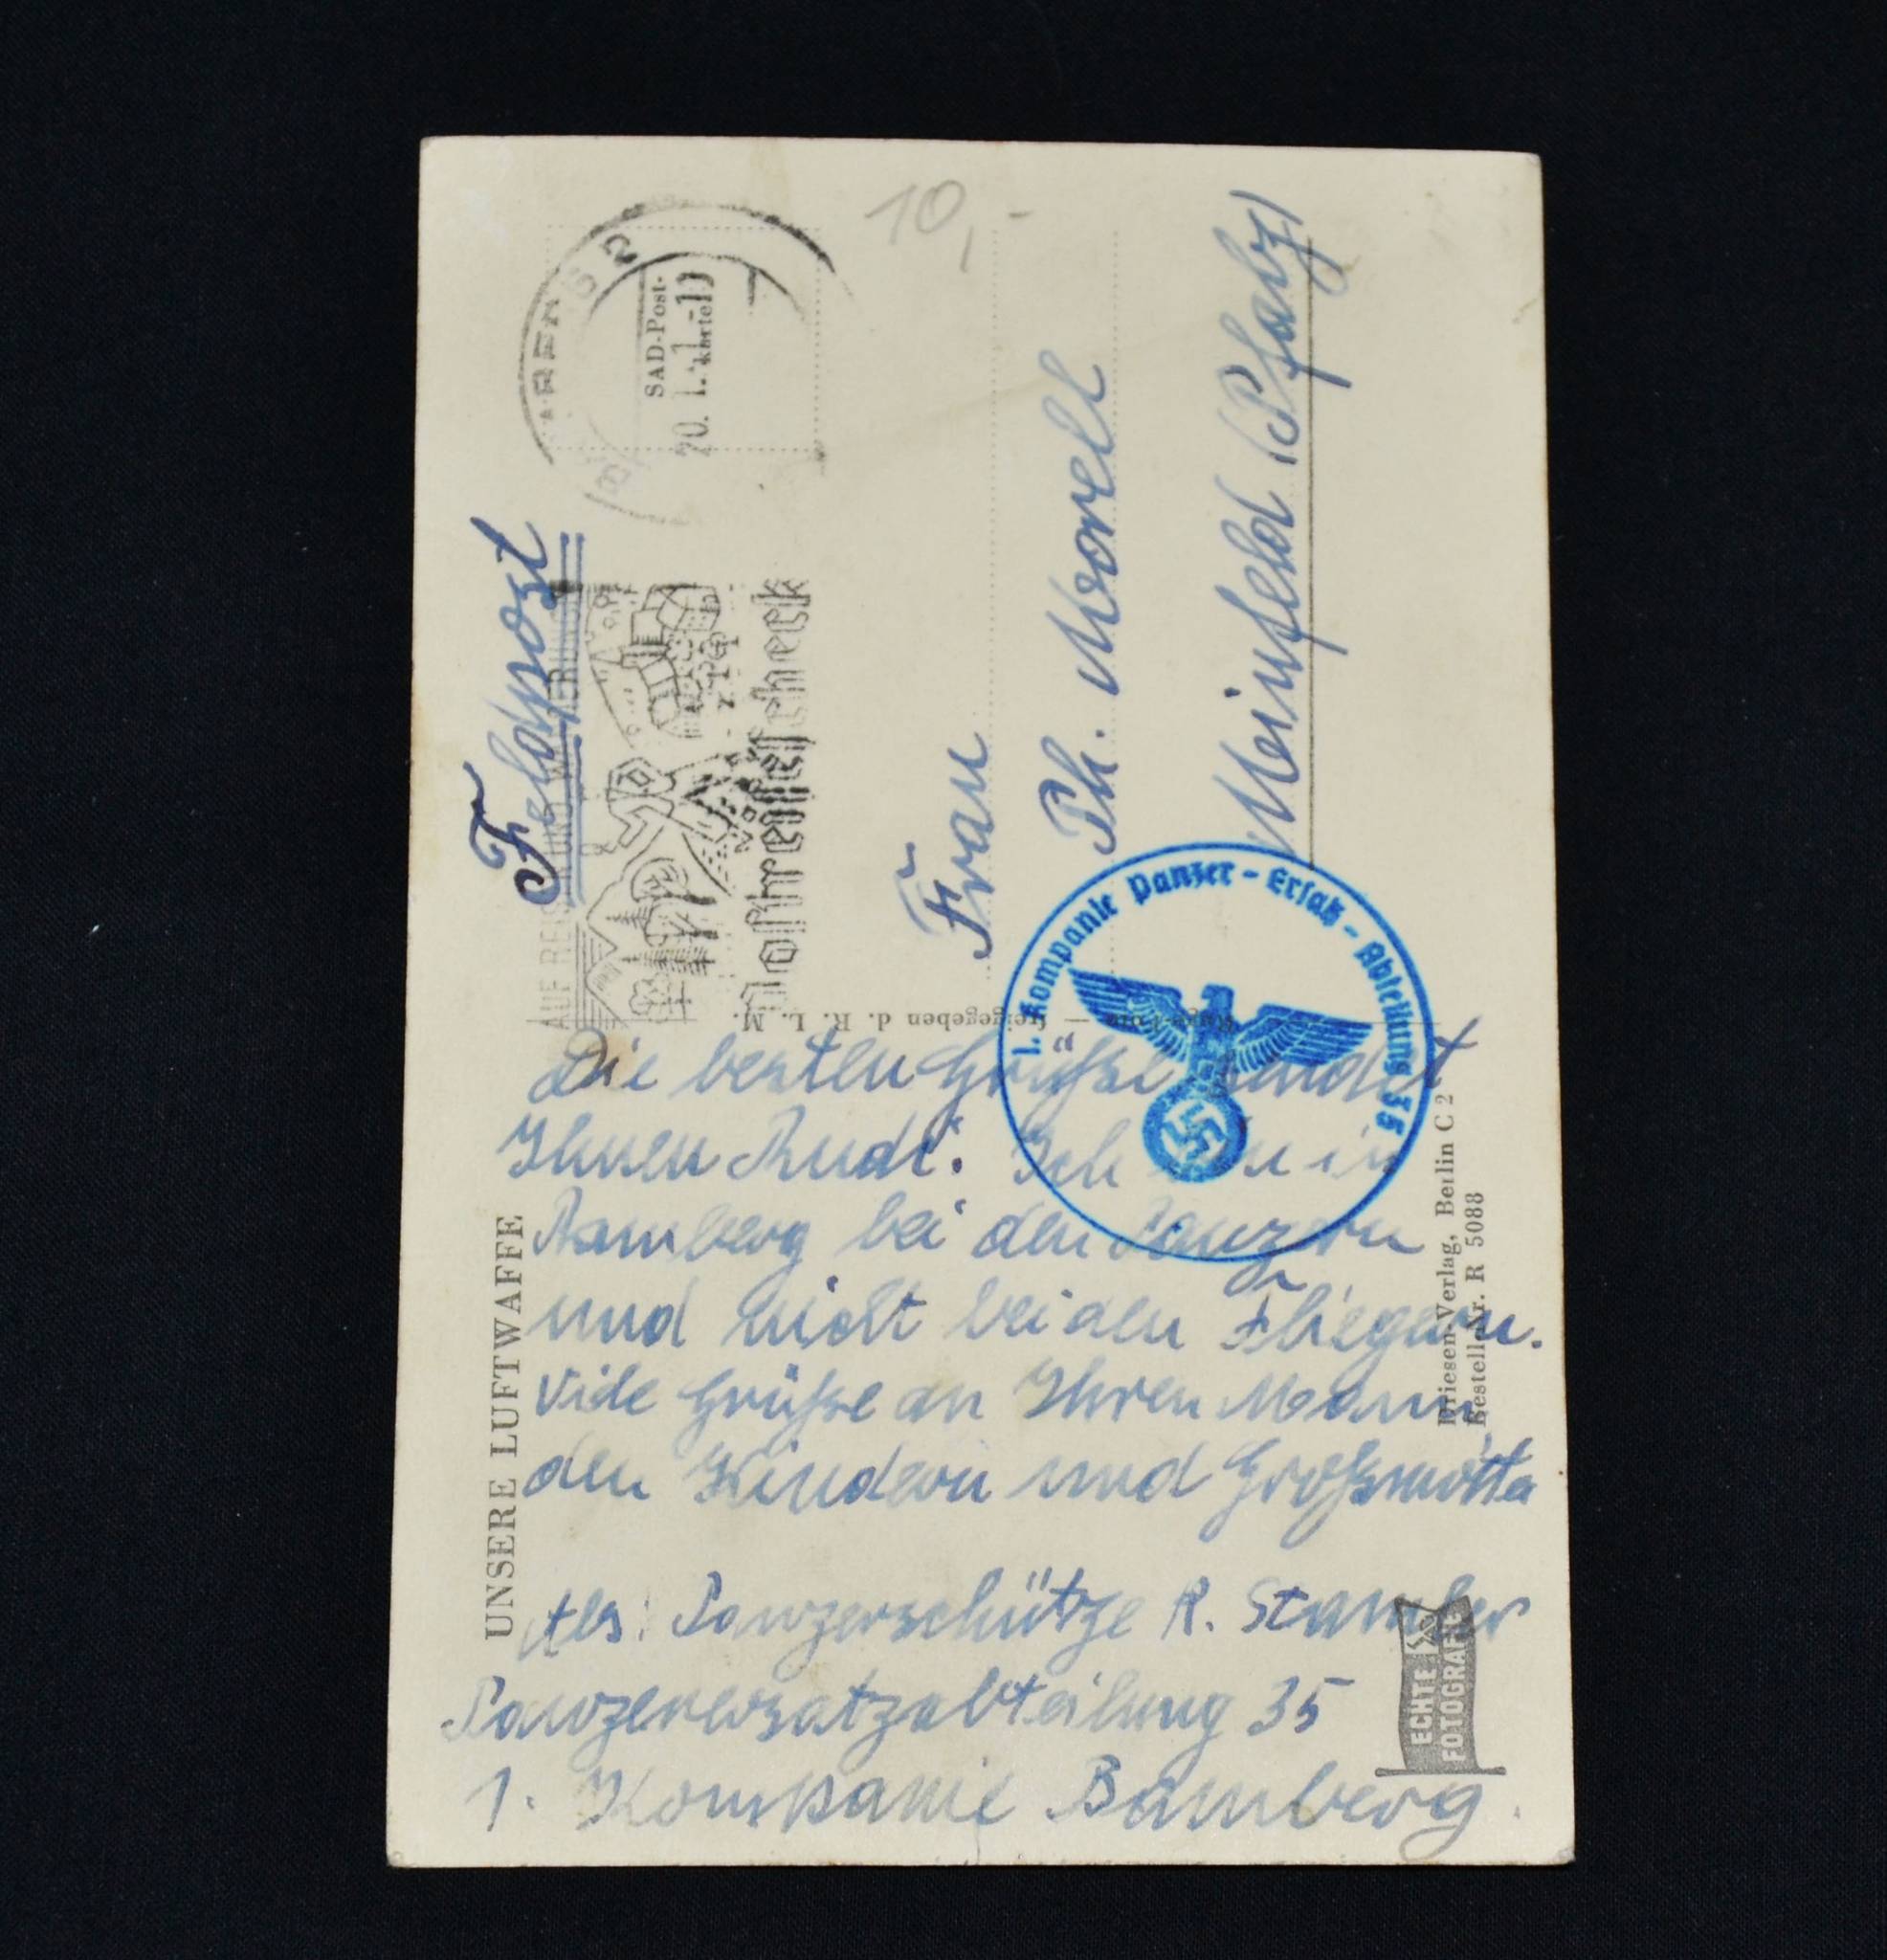 10,-
2
SAD-Post-
karte
20. 1.
Feldpost
AUF REISEN UND WANDERUNGEN
Postreisescheck
Frau
Ph. Morell
Meinfeld (Pfalz)
1. Kompanie Panzer-Ersatz-Abteilung 35
freigegeben d. R. L. M.
Die besten Grüße sendet
Ihnen Rudi. Ich bin in
Bamberg bei den Panzern
und nicht bei den Fliegern.
Viele Grüße an Ihren Mann,
den Kindern und Großmutter
UNSERE LUFTWAFFE
Abs: Panzerschütze R.
Panzerersatzabteilung 35
1. Kompanie Bamberg.
Driesen-Verlag, Berlin C 2
Bestell-Nr. R 5088
ECHTE
FOTOGRAFIE